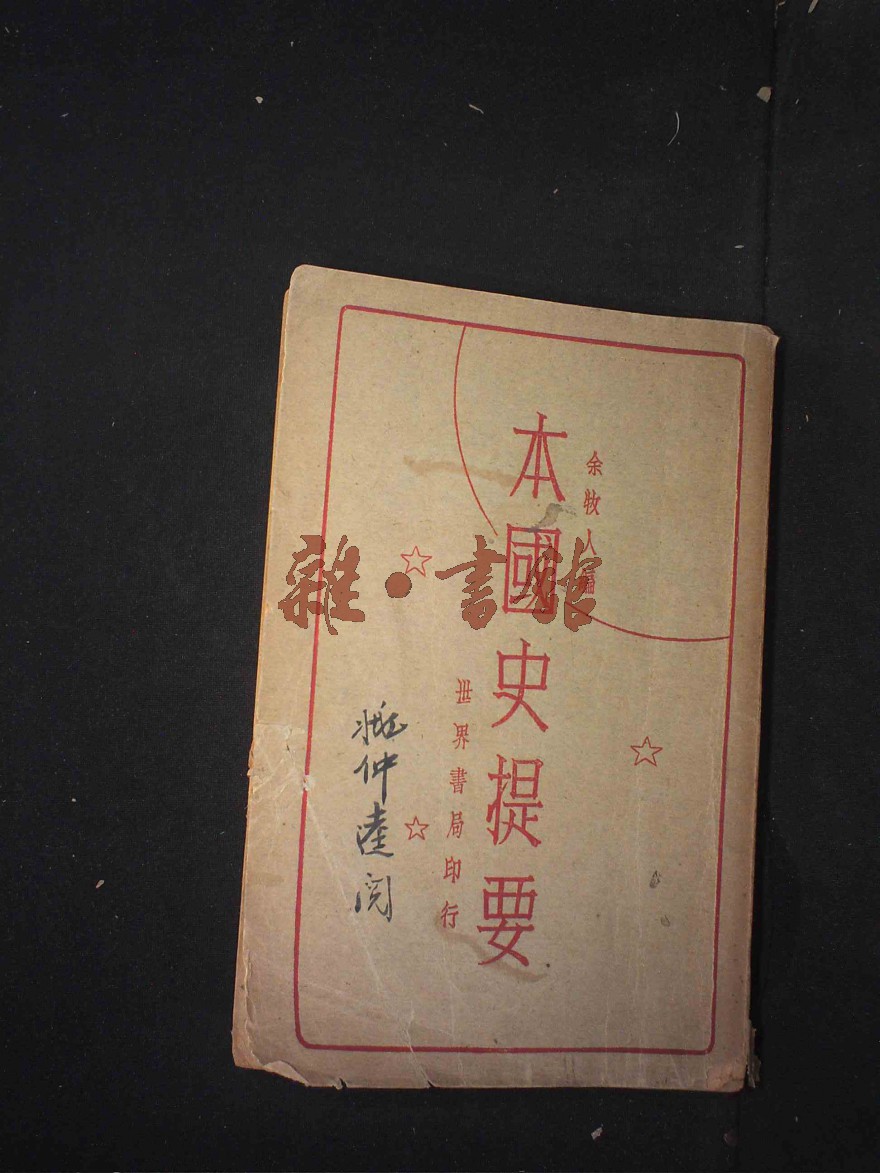 余牧人編
本國史提要
世界書局印行
仲達閱
雜·書館